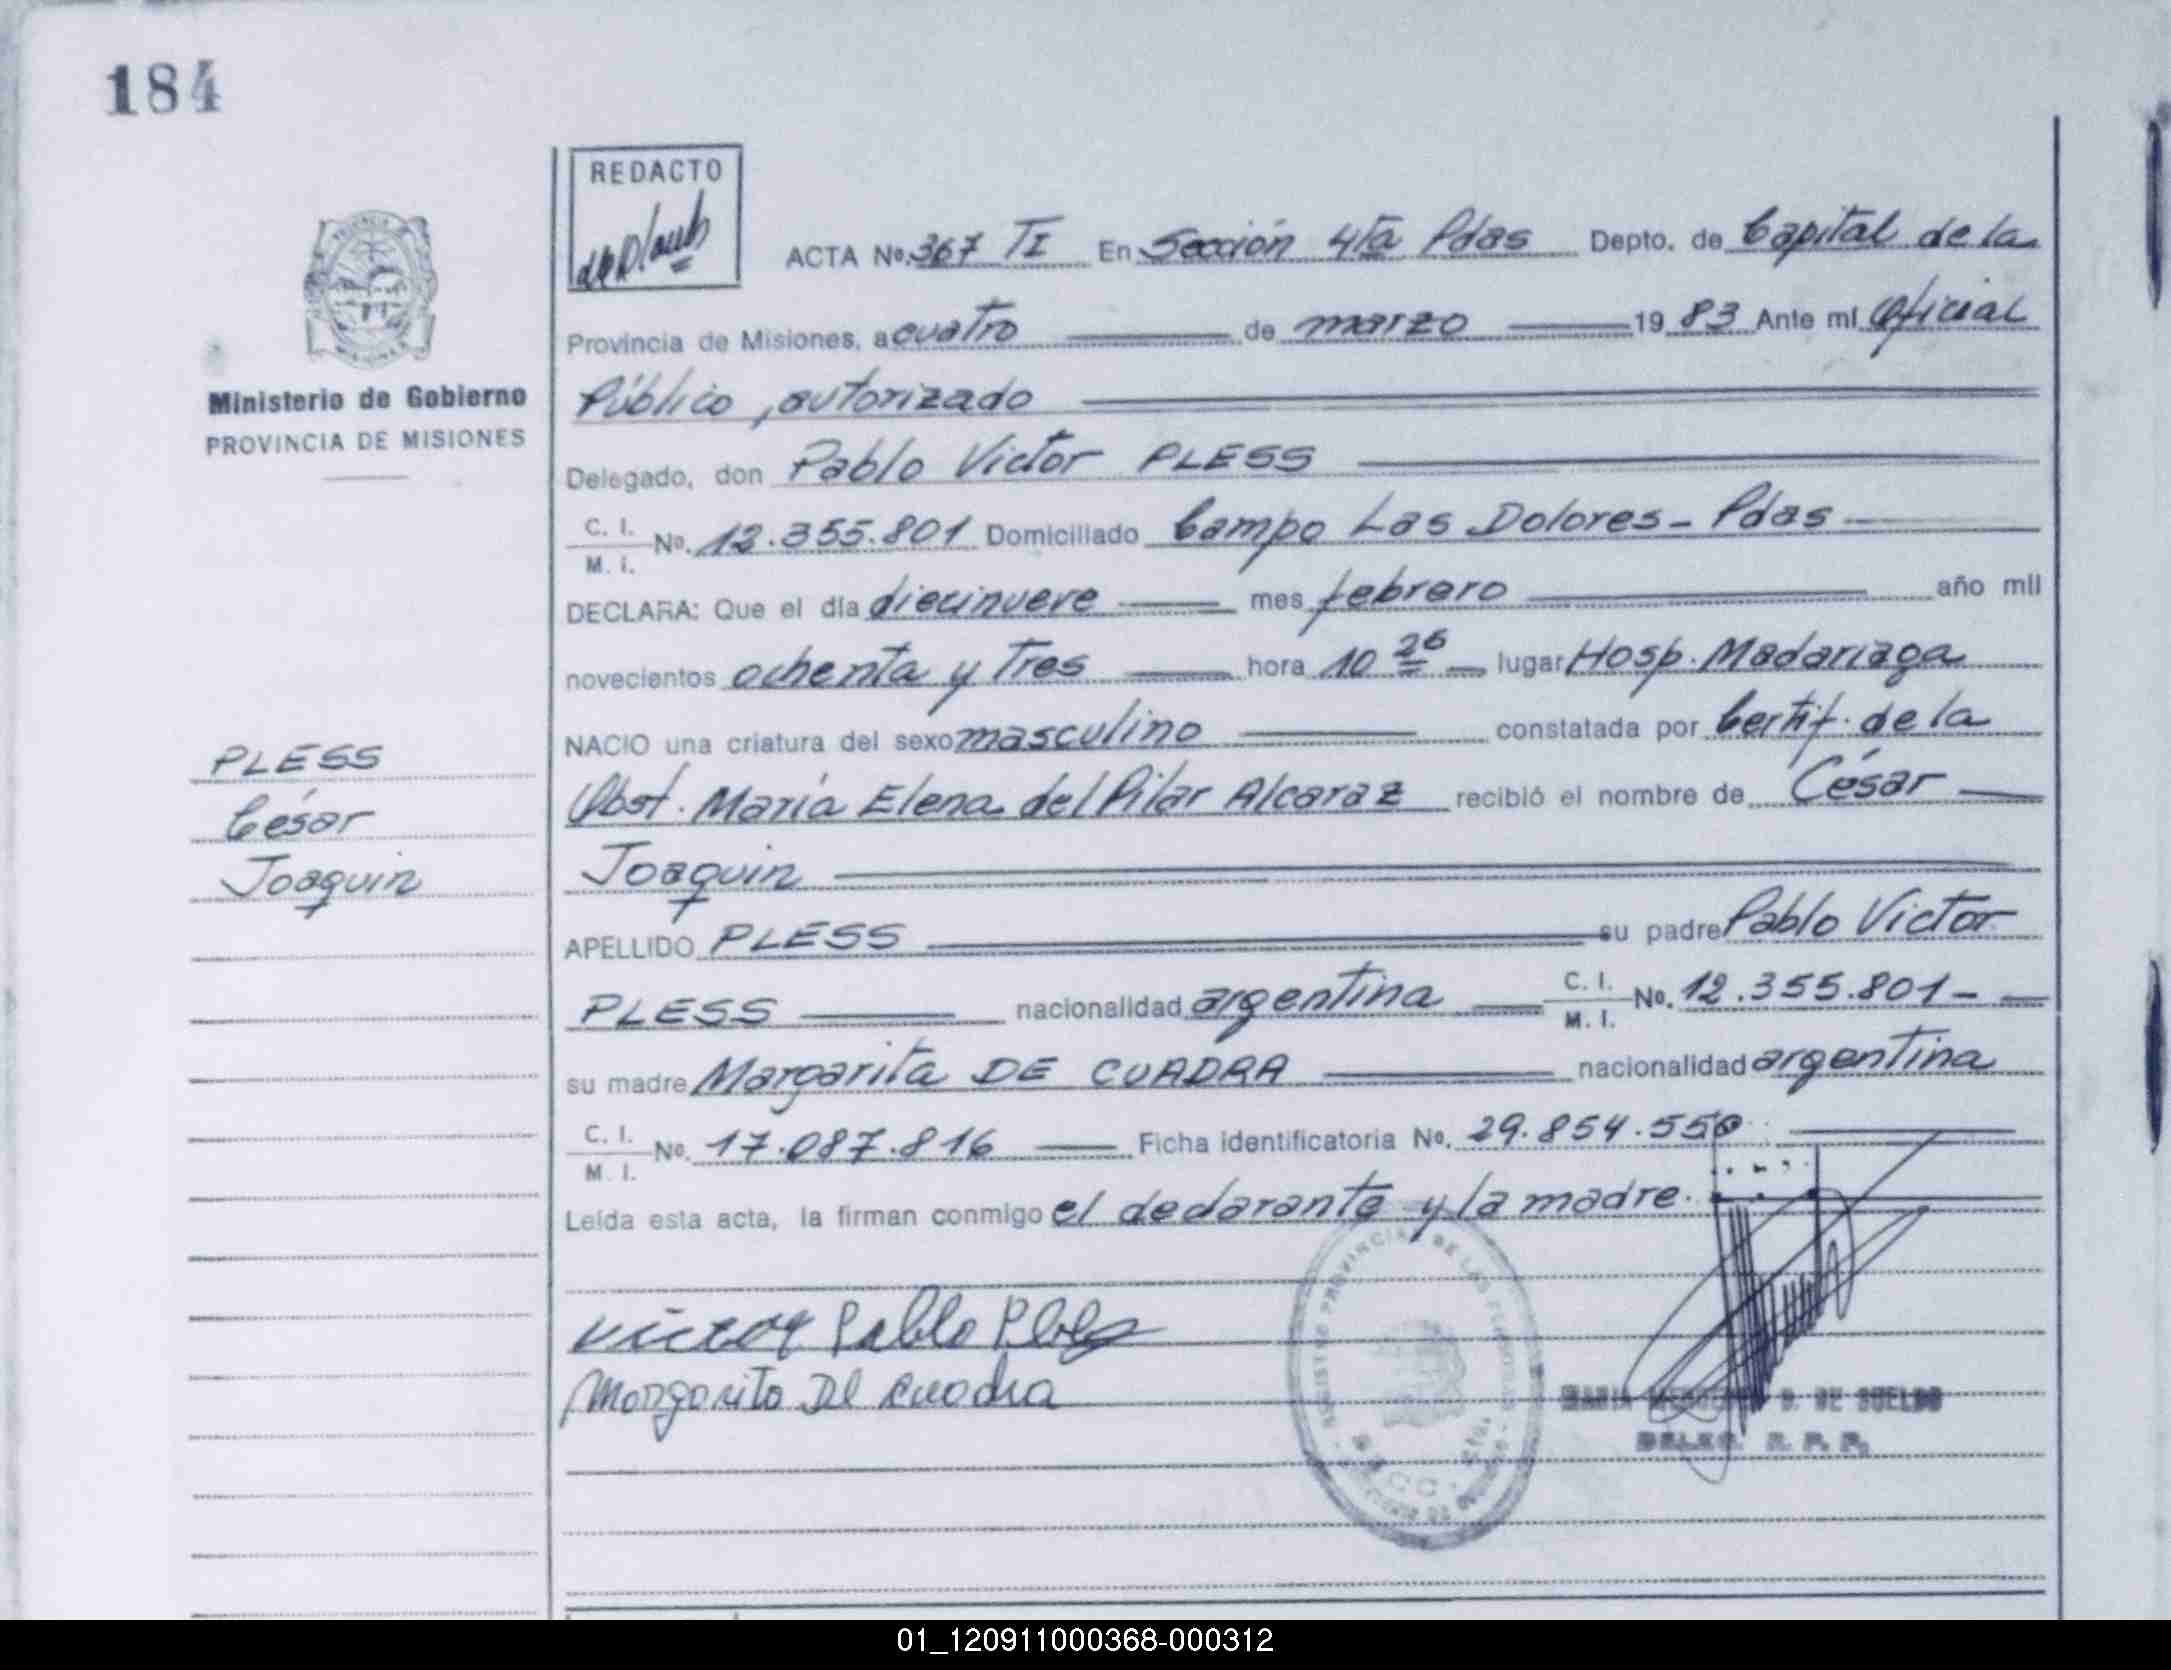 184
REDACTO
ACTA No. 367 TI En Sección 4ta Pdas Depto. de Capital de la
Provincia de Misiones, a cuatro de marzo 19 83 Ante mí Oficial
Público, autorizado
Ministerio de Gobierno
PROVINCIA DE MISIONES
Delegado, don Pablo Victor PLESS
C. I.
M. I. No. 12.355.801 Domiciliado Campo Las Dolores - Pdas
DECLARA: Que el día diecinueve mes febrero año mil
novecientos ochenta y tres hora 10 26 lugar Hosp. Madariaga
NACIO una criatura del sexo masculino constatada por Certif. de la
PLESS
César
Joaquin
Obst. María Elena del Pilar Alcaraz recibió el nombre de César
Joaquin
APELLIDO PLESS su padre Pablo Victor
PLESS nacionalidad argentina C. I. M. I. No. 12.355.801 -
su madre Margarita DE CUADRA nacionalidad argentina
C. I.
M. I. No. 17.087.816 Ficha identificatoria No. 29.854.550
Leída esta acta, la firman conmigo el declarante y la madre.
Victor Pablo Pless
Margarita De Cuadra
REGISTRO PROVINCIAL DE LAS PERSONAS
DE SUELDO
DELEG. R. P. P.
01_120911000368-000312